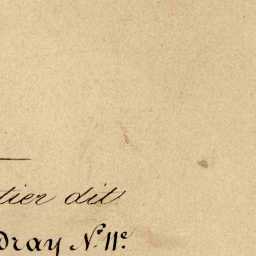 tier dit
dray N° 11c